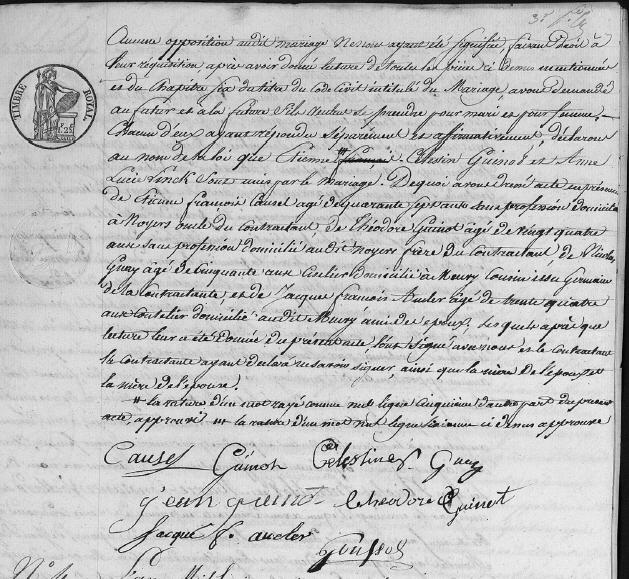 Aucune opposition audit mariage Ne nous ayant été signifiée, faisant droit à
leur réquisition après avoir donné lecture de toutes les pièces ci dessus mentionnées
et du chapitre six du titre du Code Civil intitulé du Mariage avons demandé
au futur et à la future s'ils veulent se prendre pour mari et pour femme. —
Chacun d'eux ayant répondu séparément et affirmativement, déclarons
au nom de la loi que Etienne Celestin Guinot et Anne
Lucie sont unis par le mariage. De quoi avons dressé acte en présence
de Etienne françois Causel agé de quarante sept ans sans profession domicilié
à Noyers oncle du contractant, de Théodore Guinot âgé de vingt quatre
ans sans profession domicilié audit Noyers frère du contractant, de Nicolas
Guay âgé de Cinquante ans domicilié à Meury Cousin issu Germain
de la contractante et de Jacques françois âgé de trente quatre
ans Coutelier domicilié audit Meury ami des epoux. Lesquels après que
lecture leur a été Donnée du présent acte l'ont signé avec nous et le Contractant
la contractante ayant déclaré ne savoir signer ainsi que la mère de l'époux et
la mère de l'épouse.
# la rature d'un mot rayé comme nul ligne cinquième d'autre part du présent
acte, approuvé # la rature d'un mot nul ligne Sixième ci dessus approuvé
Causel Guinot Celestin Guay
jean guinot theodore Guinot
jacque f.
Goussot
TIMBRE ROYAL